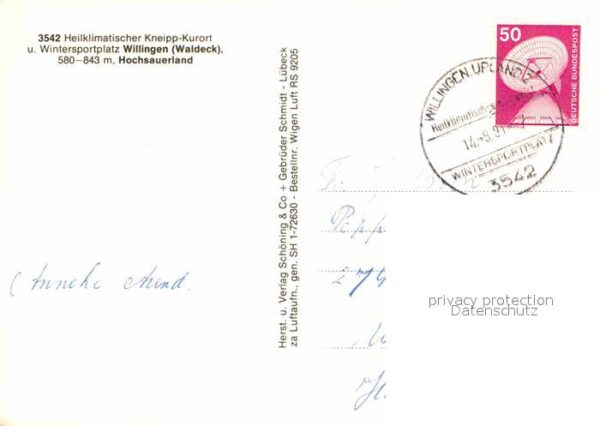 3542 Heilklimatischer Kneipp-Kurort
u. Wintersportplatz Willingen (Waldeck),
580–843 m, Hochsauerland
Herst. u. Verlag Schöning & Co + Gebrüder Schmidt - Lübeck
za Luftaufn., gen. SH 1-72630 - Bestellnr. Wigen Luft RS 9205
50
DEUTSCHE BUNDESPOST
WILLINGEN, UPLAND
Heilklimatischer
14.-8.81
WINTERSPORTPLATZ
3542
privacy protection
Datenschutz